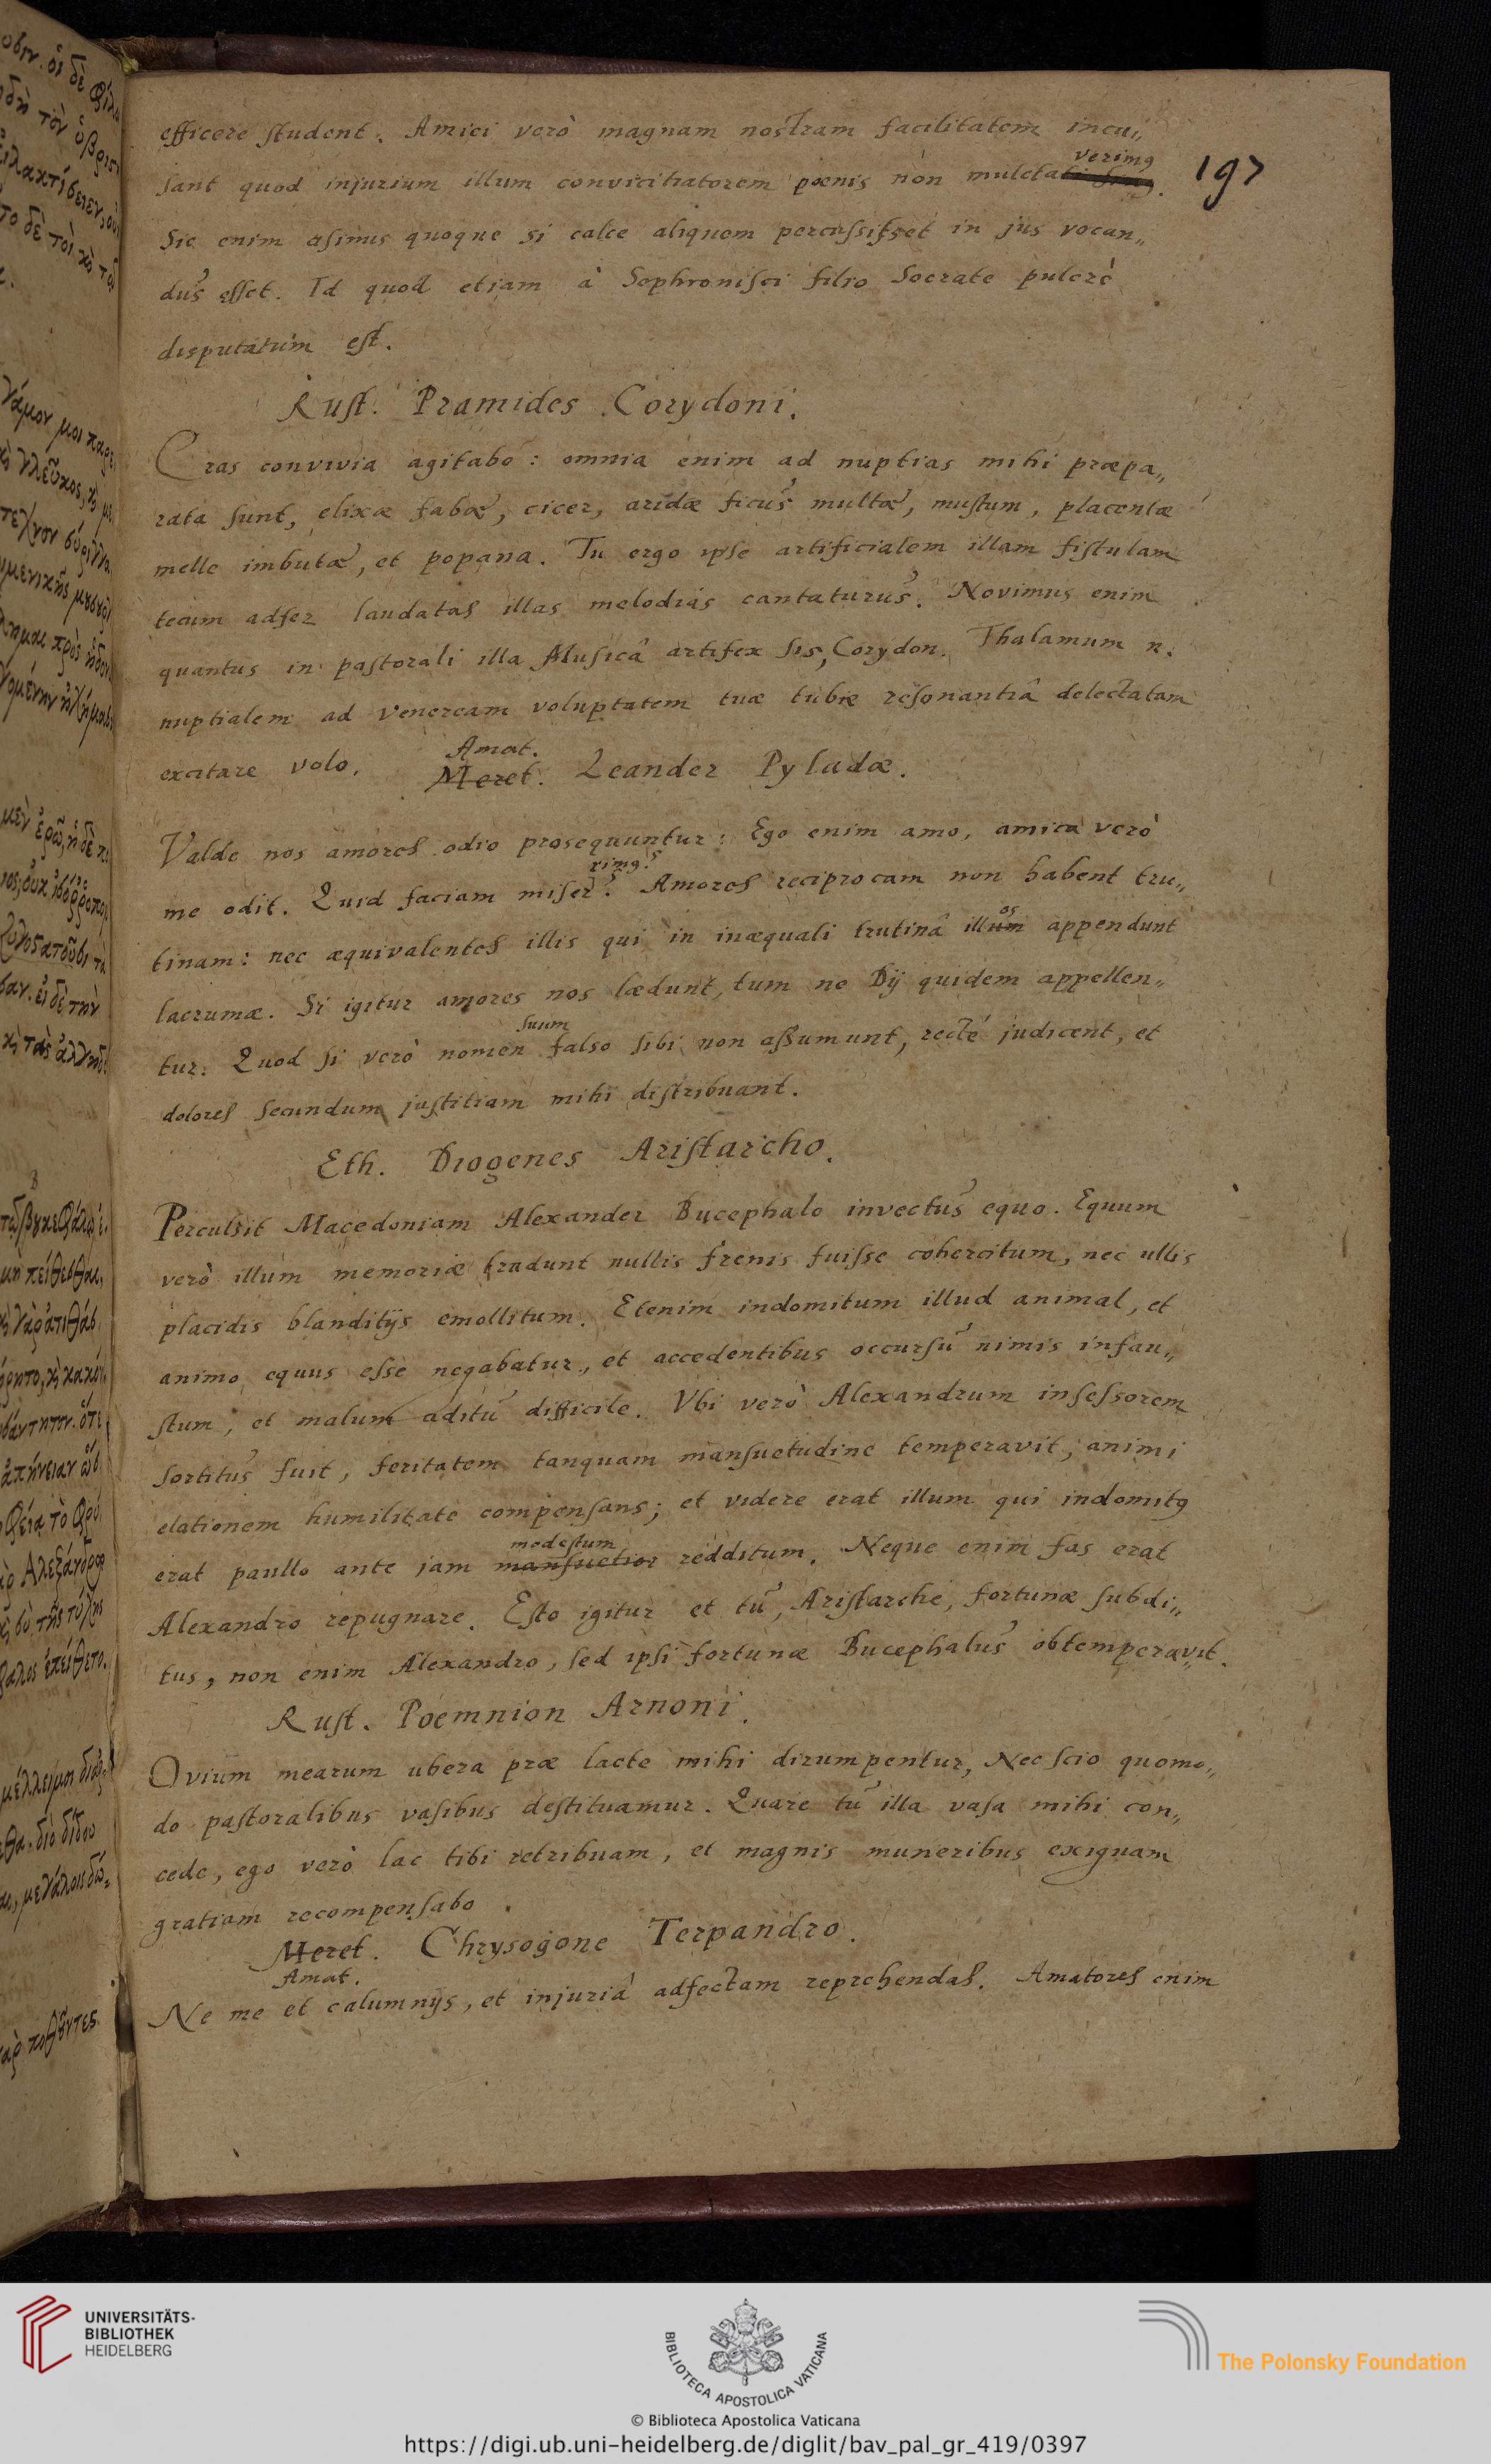 197
efficere student. Amici verò magnam nostram facilitatem incu„
verimꝰ
sant quod injurium illum convicitiatorem pœnis non mulcta
Sic enim asinus quoque si calce aliquem percussisset in jus vocan„
dus esset. Id quod etiam à Sophronisci filio Socrate pulcrè
disputatum est.
Rust. Pramides Corydoni.
Cras convivia agitabo: omnia enim ad nuptias mihi præpa„
rata sunt, elixæ fabæ, cicer, aridæ ficus multæ, mustum, placentæ
melle imbutæ, et popana. Tu ergo ipse artificialem illam fistulam
tecum adfer laudatas illas melodias cantaturus. Novimus enim
quantus in pastorali illa Musicâ artifex sis, Corydon. Thalamum n.
nuptialem ad Veneream voluptatem tuæ tubæ resonantiâ delectatam
excitare volo.
Amat.
Meret. Leander Pyladæ.
Valde nos amores odio prosequuntur: Ego enim amo, amica verò
rimꝰ?
me odit. Quid faciam miser? Amores reciprocam non habent tru„
os
tinam: nec æquivalentes illis qui in inæquali trutinâ illum appendunt
lacrumæ. Si igitur amores nos lædunt, tum ne Dij quidem appellen„
suum
tur. Quod si verò nomen falso sibi non assumunt, rectè judicent, et
dolores secundum justitiam mihi distribuant.
Eth. Diogenes Aristarcho.
Perculsit Macedoniam Alexander Bucephalo invectus equo. Equum
verò illum memoriæ tradunt nullis frenis fuisse cohercitum, nec ullis
placidis blanditijs emollitum. Etenim indomitum illud animal, et
animo equus esse negabatur, et accedentibus occursu nimis infau„
stum, et malum aditu difficile. Vbi verò Alexandrum insessorem
sortitus fuit, feritatem tanquam mansuetudine temperavit, animi
elationem humilitate compensans; et videre erat illum qui indomitꝰ
modestum
erat paullo ante jam mansuetior redditum. Neque enim fas erat
Alexandro repugnare. Esto igitur et tu, Aristarche, fortunæ subdi„
tus, non enim Alexandro, sed ipsi fortunæ Bucephalus obtemperavit.
Rust. Poemnion Arnoni.
Ovium mearum ubera præ lacte mihi dirumpentur, Nec scio quomo„
do pastoralibus vasibus destituamur. Quare tu illa vasa mihi con„
cede, ego verò lac tibi retribuam, et magnis muneribus exiguam
gratiam recompensabo.
Meret. Chrysogone Terpandro.
Amat.
Ne me et calumnijs, et injuriâ adfectam reprehendas. Amatores enim
UNIVERSITÄTS-
BIBLIOTHEK
HEIDELBERG
BIBLIOTECA APOSTOLICA VATICANA
© Biblioteca Apostolica Vaticana
The Polonsky Foundation
https://digi.ub.uni-heidelberg.de/diglit/bav_pal_gr_419/0397